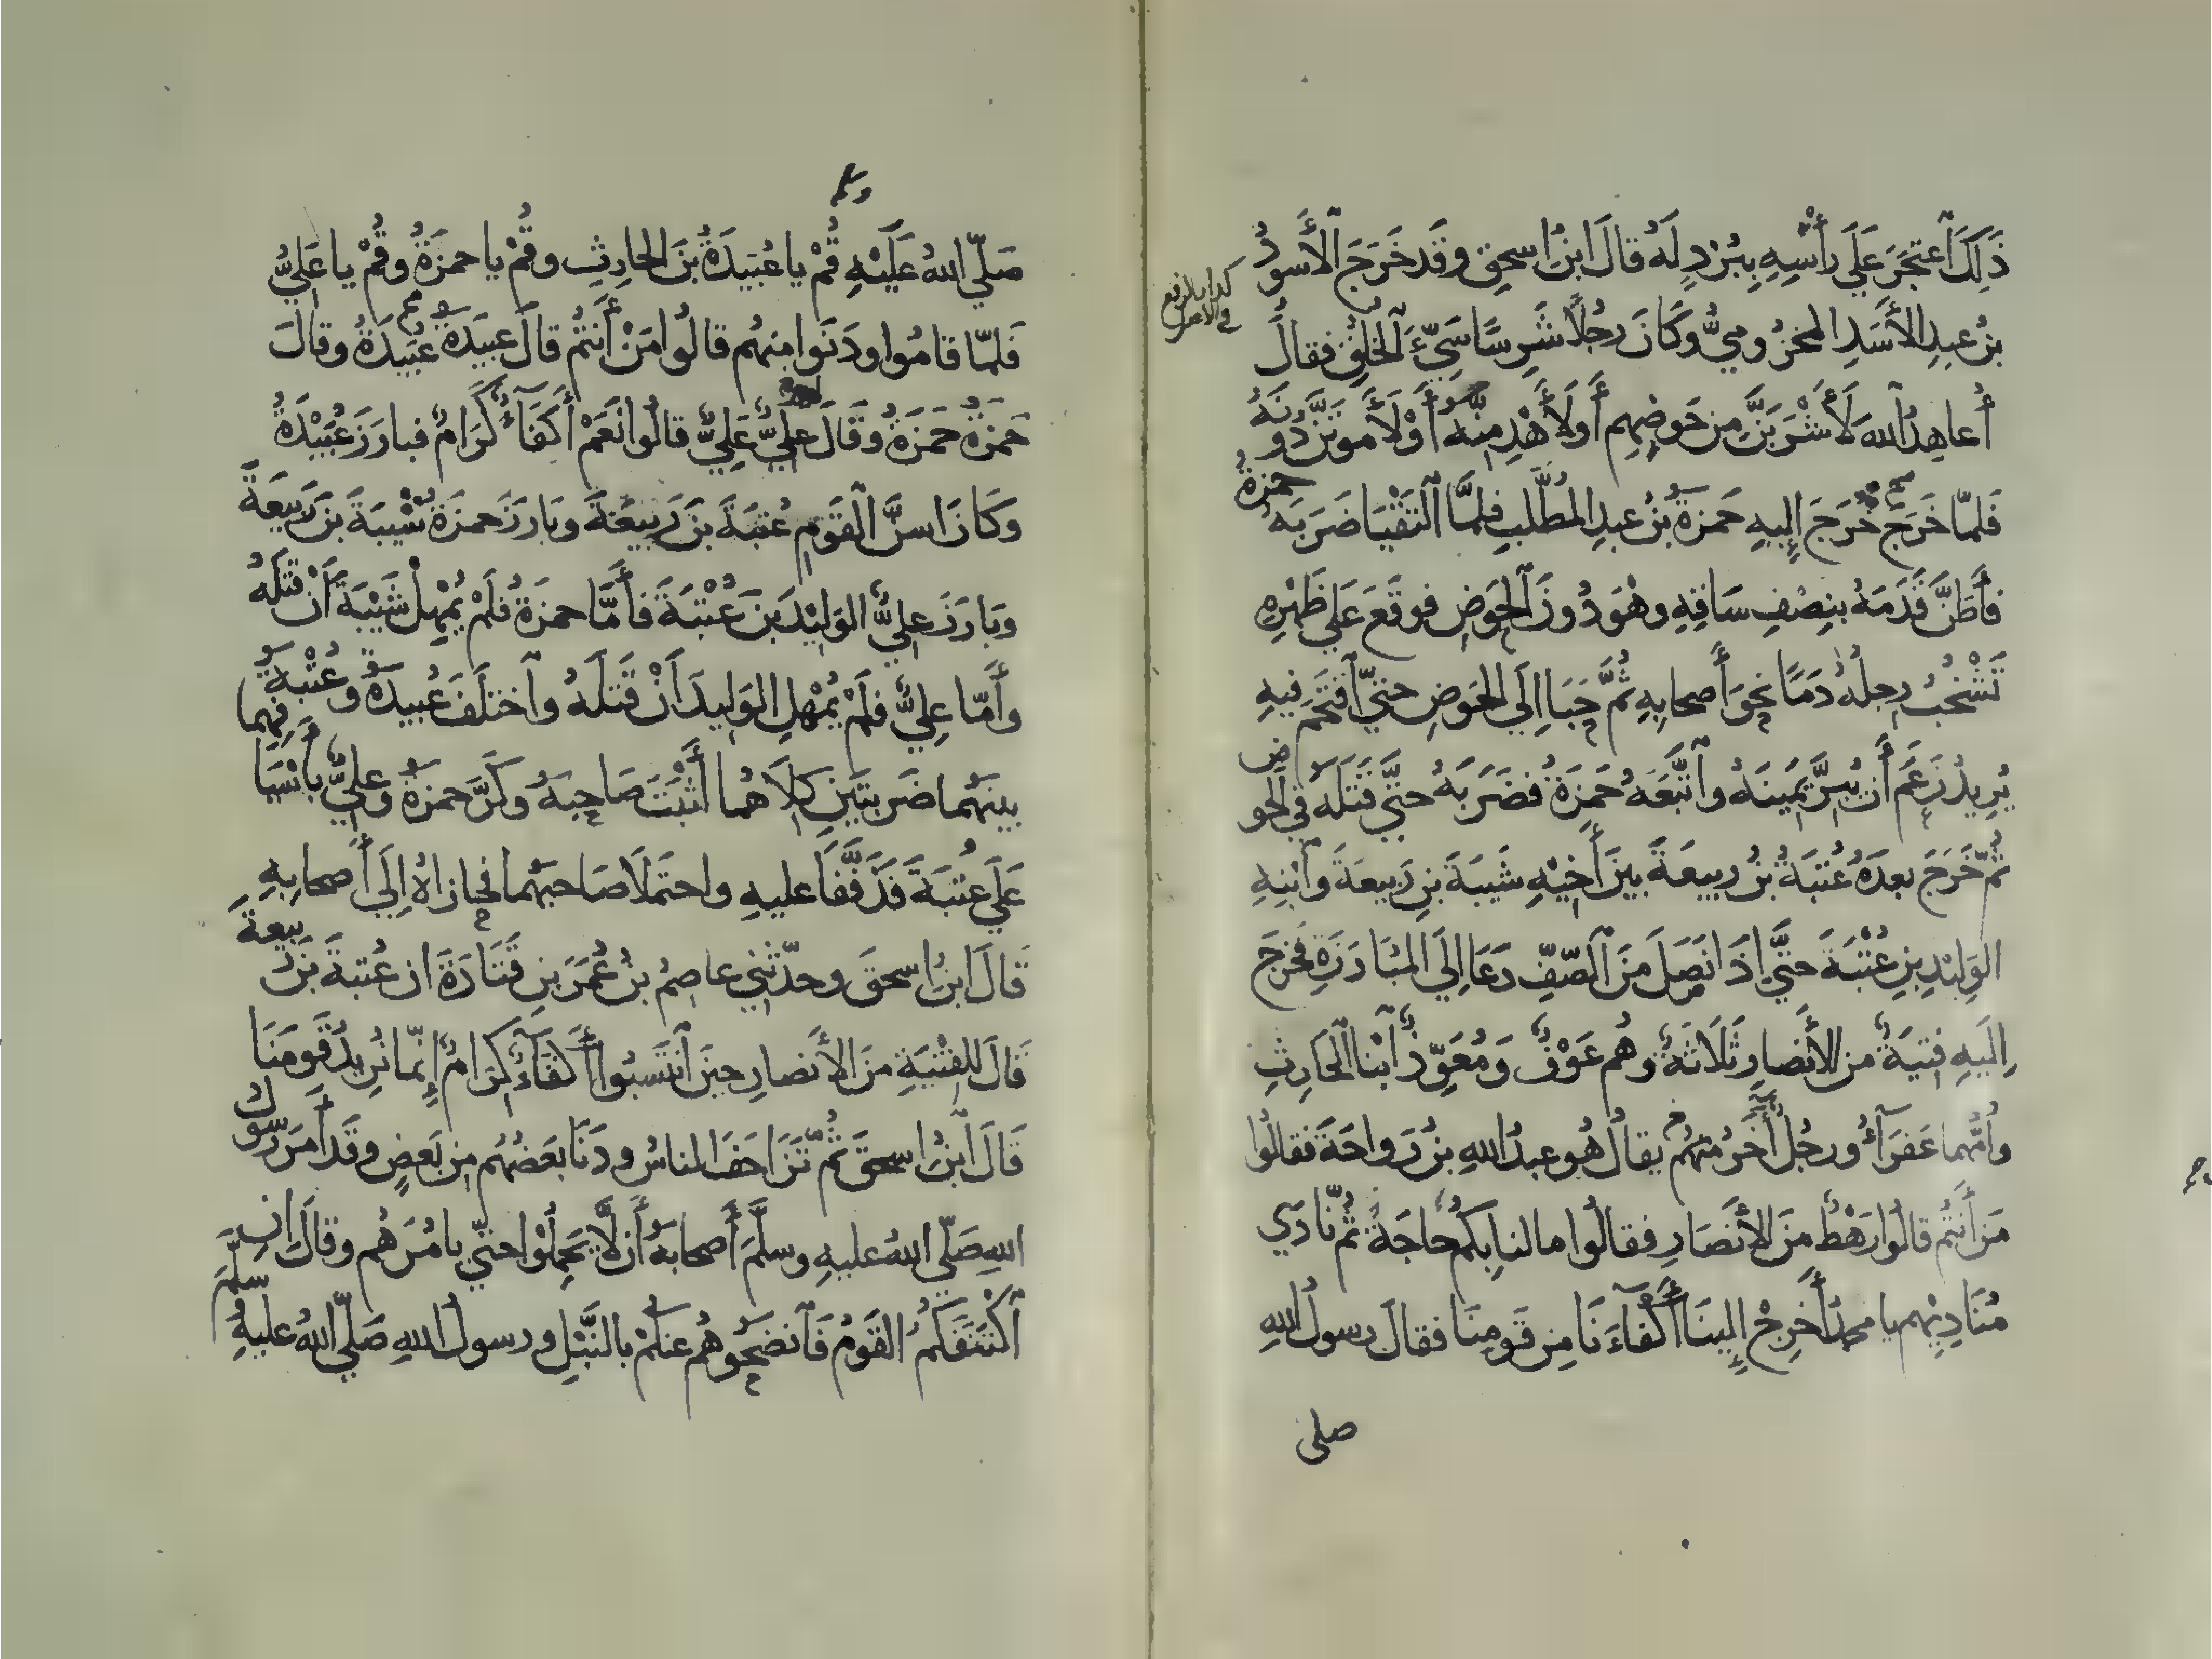 ذَلِكَ اَعتَجَرَ عَلَى رَأْسِهِ بِبُرْدٍ لَهُ قالَ ابنُ اسحق وقَد خَرَجَ الأَسودُ
بنُ عبدِ الأَسَدِ المخزُوميُّ وَكَانَ رَجُلًا شَرِسًا سَيِّءَ الخُلُقِ فقالَ
أُعاهِدُ اللهَ لَأَشْرَبَنَّ مِن حَوضِهِم أَولَأَهْدِمَنَّهُ أَوْ لَأَموتَنَّ دُونَهُ
فَلمّا خَرَجَ خَرَجَ إِليهِ حَمزةُ بنُ عبدِ المُطَّلبِ فلَمَّا التَقْيَا ضَرَبَه حمزةُ
فأَطَنَّ قَدَمَهُ بِنِصْفِ سَاقِهِ وهْوَ دُونَ الحَوضِ فوقَعَ عَلى ظَهْرِهِ
تَشْخُبُ رِجلُهُ دَمًا نحوَ أَصحابِهِ ثُمَّ حَبَا إِلَى الحَوضِ حتىّ اَقتَحَم فِيهِ
يُرِيدُ زَعَمَ أَن يُبِرَّ يَمِينَهُ واَتَّبَعَهُ حَمزَةُ فضَرَبَهُ حتىَّ قَتَلَه في الحوض
ثُمّ خَرَجَ بعدَهُ عُتبَةُ بنُ ربيعَةَ بينَ أَخِيْهِ شَيبَةَ بنِ رَبيعَةَ واَبنِهِ
الوَلِيْدِ بنِ عُتْبَةَ حتىَّ إِذَا نَصَلَ مِنَ الصّفِّ دَعَا إِلَى المُبَارَزَةِ فخرَجَ
إِلَيهِ فِتيَةٌ من الأَنصارِ ثَلَاثَةٌ وهُم عَوْفٌ وَمُعَوِّذٌ اَبْنا الحَارِثِ
وأُمُّهما عَفرَآءُ ورجُلٌ أَخَرُ مِنهُم يقالُ هُو عبدُ اللهِ بنُ رَواحَةَ فقالُوا
مَن أَنتُم قالُوا رَهْطٌ منَ الأَنصَارِ فقالُوا مالنا بِكُم حَاجَةٌ ثُمّ نَادَي
مُنَادِيْهِم يا محمدُ أَخرِجْ إِلينَا أَكْفَاءَنَا مِن قَومِنَا فقالَ رسولُ اللهِ
صلى
صَلّى اللهُ عَلَيْهِ قُمْ يا عُبَيدَةُ بنَ الحارِثِ وقُمْ يا حمزَةُ وقُمْ يا عَلِيُّ
فَلمّا قامُوا ودَنَوا مِنهُم قالُوا مَنْ أَنتُمْ قالَ عُبيدَةُ عُبَيدَةُ وقالَ
حَمزَةُ حَمزَةُ وقَالَ عليٌّ عَلِيٌّ قالُوا نَعَمْ أَكفَآءٌ كِرَامٌ فبارَزَ عُبَيْدَةُ
وَكَانَ اسنَّ القَومِ عُتبَةَ بنَ رَبِيعَةَ وبَارَزَ حَمزَةُ شَيبَةَ بنَ رَبيعَةَ
وبَارَزَ عليٌّ الوَلِيْدَ بنَ عُتْبَةَ فأَمَّا حمزَةُ فلَمْ يُمْهِلْ شَيْبَةَ أَنْ قَتَلَهُ
وأَمّا عليٌّ فلَمْ يُمْهِلِ الوَلِيدَ أَنْ قَتَلَهُ واَختلَفَ عُبيدَةُ وعُتْبَةُ
بينَهُما ضَربتَينِ كِلَاهُما أَثْبَتَ صَاحِبَهُ وكَرَّ حمزةُ وعليٌّ بأَسْيَافِهِما
عَلَى عُتبَةَ فَذَفَّفَا عليهِ واحتَملَا صَاحبَهُما فحازاهُ إِلَى أَصحابِهِ
قَالَ ابنُ اسحقَ وحدّثنِي عاصِمُ بنُ عُمَرَ بنِ قَتَادَةَ ان عُتبةَ بنَ رَبيعةَ
قَالَ للفِتْيَةِ منَ الأَنصارِ حينَ اَنتَسَبُوا أَكفَآءٌ كِرَامٌ إِنّما نُرِيدُ قَومَنَا
قَالَ ابنُ اسحقَ ثُمّ تَزَاحَفَ الناسُ ودَنَا بَعضُهُم مِن بَعضٍ وقَد أَمَرَ رَسولُ
اللهِ صَلّى اللهُ عليهِ وسلَّمَ أَصحابَهُ أَن لَّا يَحمِلُوْا حتىّ يامُرَهُم وقالَ انِ
اَكْتَنَفَكُمُ القَومُ فَاَنضَحُوهُم عنكُمْ بالنَّبْلِ ورسولُ اللهِ صَلّى اللهُ عليهِ وسلَّمَ